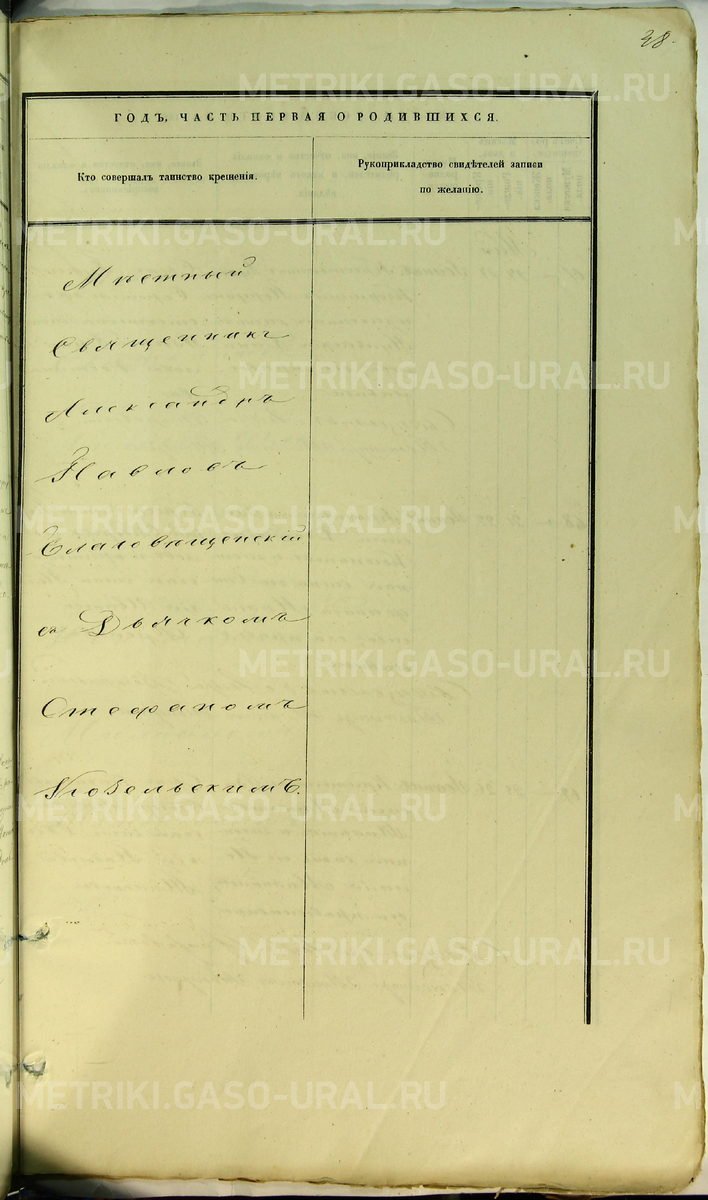 38.
ГОДЪ, ЧАСТЬ ПЕРВАЯ О РОДИВШИХСЯ.
Кто совершалъ таинство крещенія.
Рукоприкладство свидѣтелей записи
по желанію.
Мѣстный
Священникъ
Александръ
Павловъ
Благовѣщенскій
съ Дьячкомъ
Стефаномъ
METRIKI.GASO-URAL.RU
METRIKI.GASO-URAL.RU
METRIKI.GASO-URAL.RU
METRIKI.GASO-URAL.RU
METRIKI.GASO-URAL.RU
METRIKI.GASO-URAL.RU
METRIKI.GASO-URAL.RU
METRIKI.GASO-URAL.RU